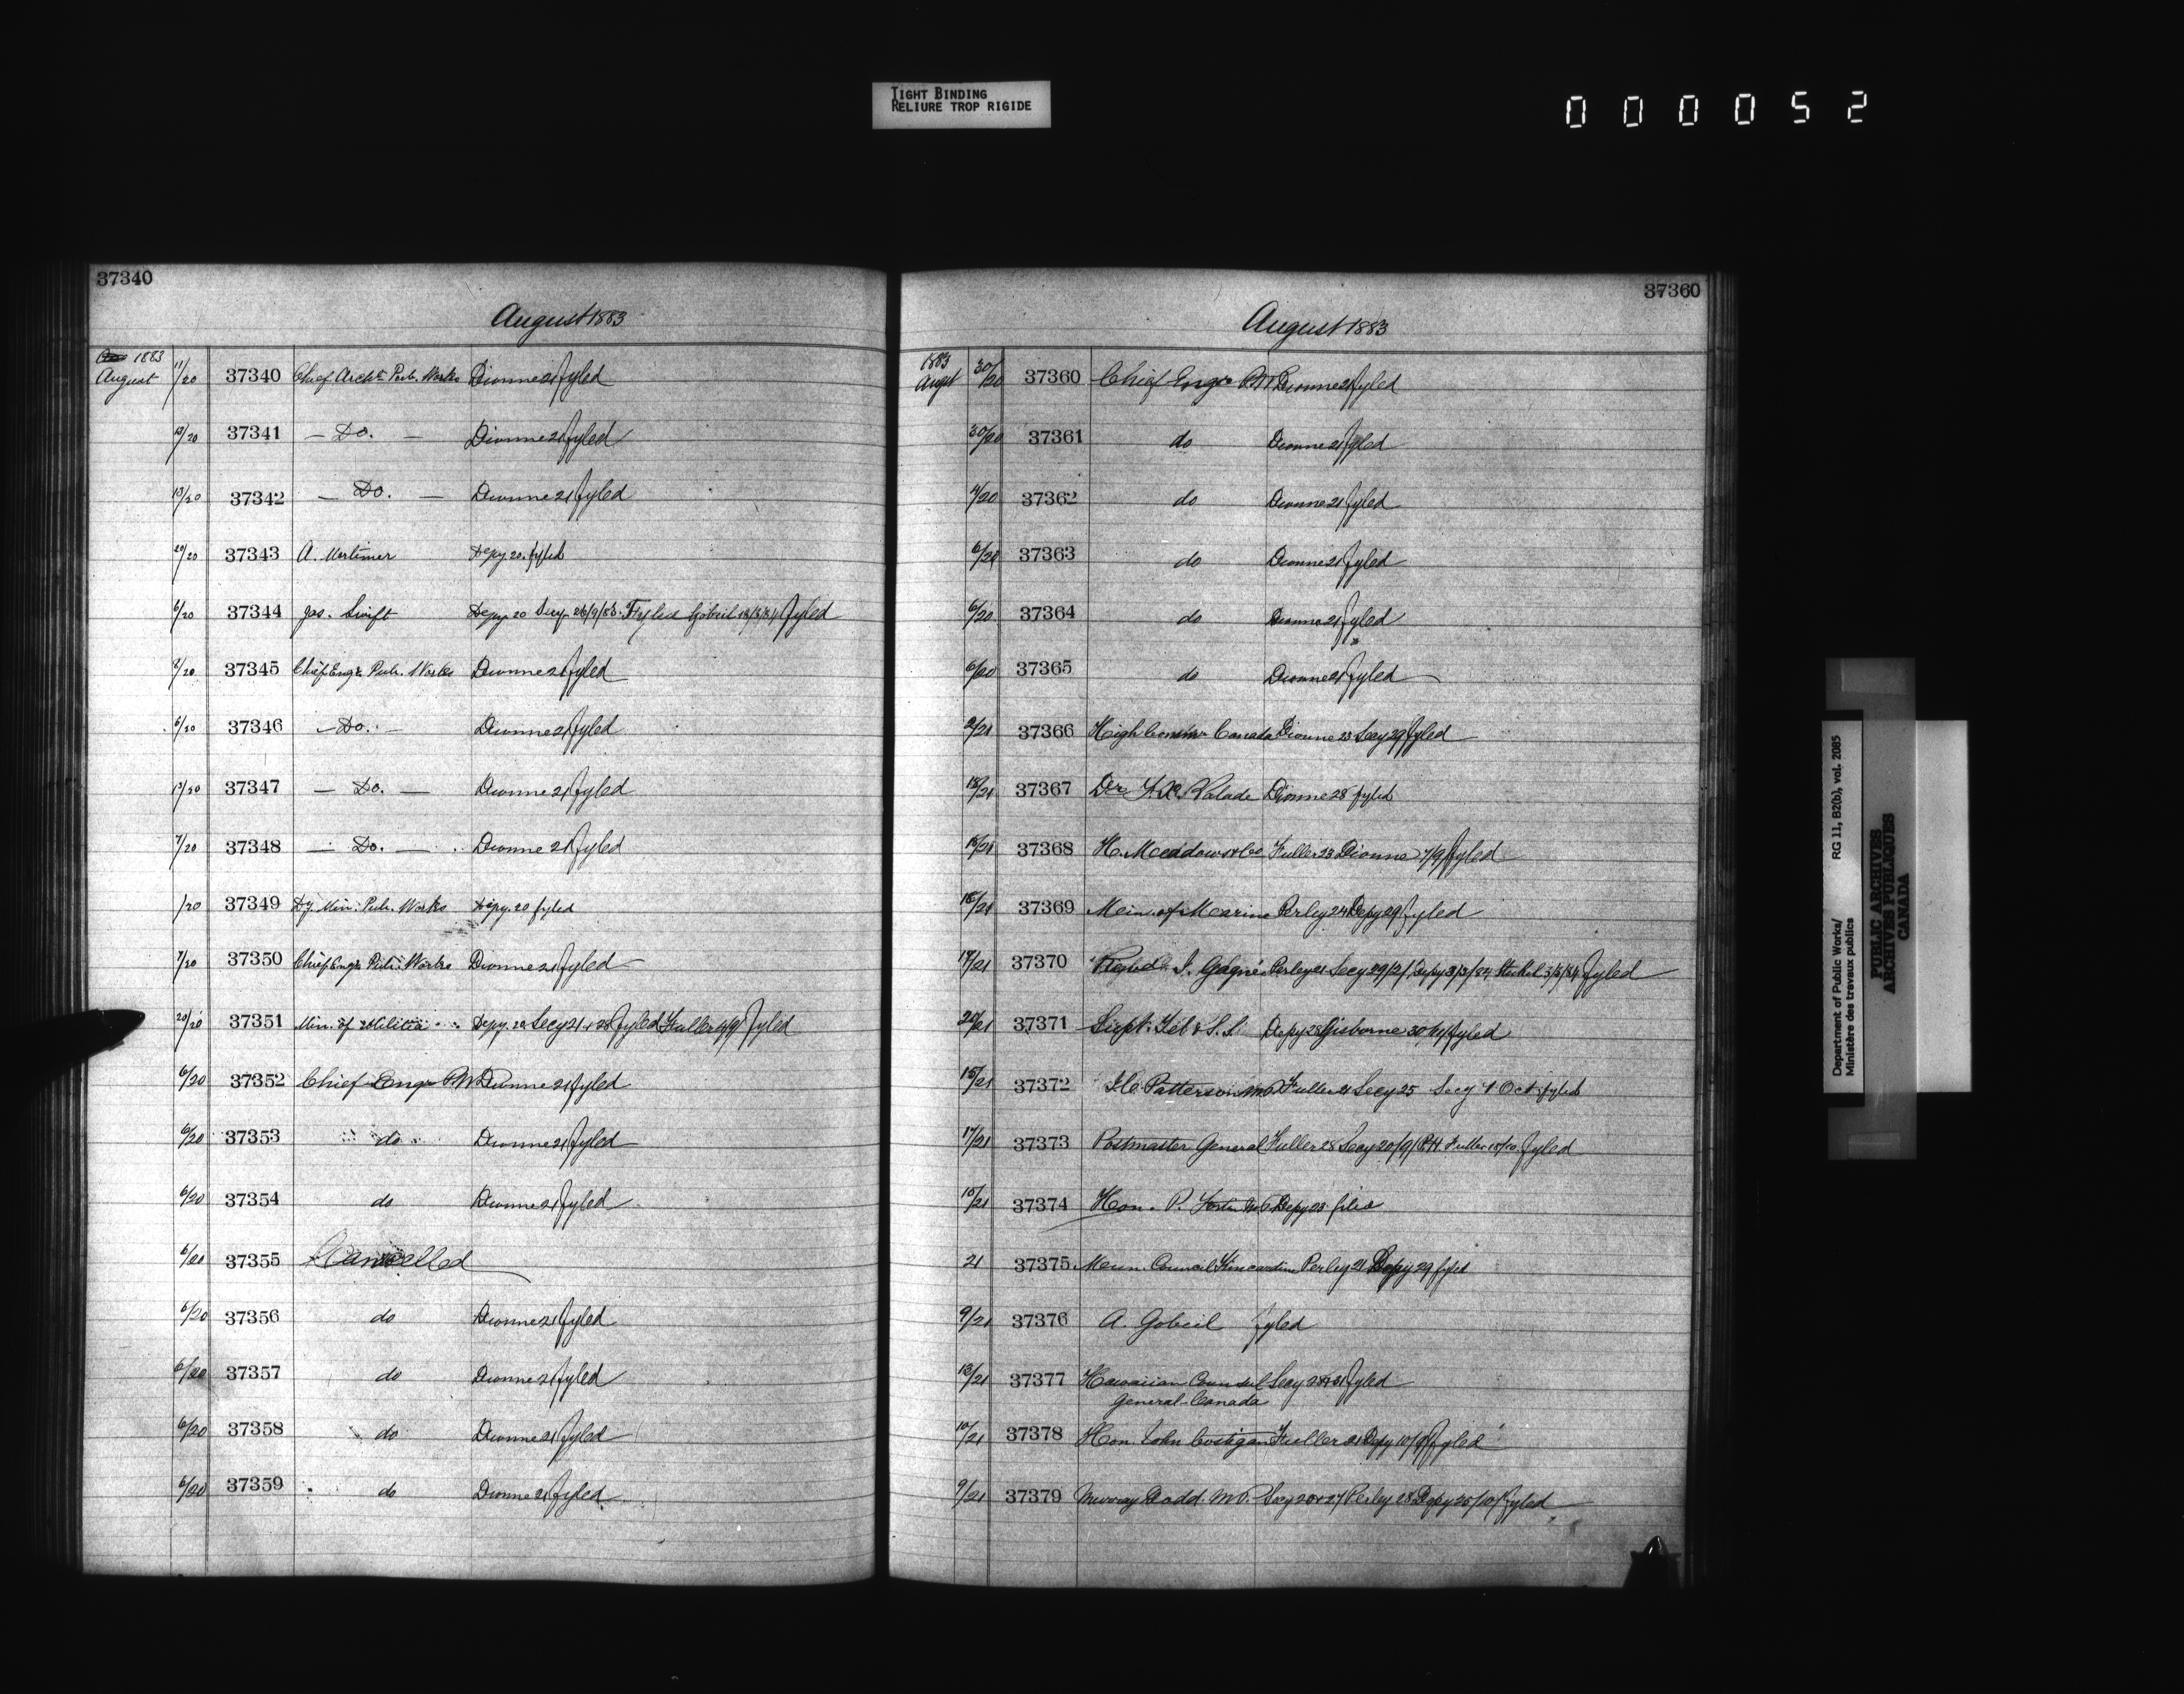 TIGHT BINDING
RELIURE TROP RIGIDE
000052
37340
August 1883
1883
August 11/20 37340 Chief Archt. Pub. Works Dionne 21 fyled
13/20 37341 — Do. — Dionne 21 fyled
13/20 37342 — Do. — Dionne 21 fyled
20/20 37343 A. Mortimer Depy. 20. fyled
6/20 37344 Jas. Swift Depy 20 Secy 26/9/83. Fyled Gobeil 13/3/84 fyled
2/20 37345 Chief Engr. Pub. Works Dionne 21 fyled
6/20 37346 — Do. — Dionne 21 fyled
13/20 37347 — Do. — Dionne 21 fyled
7/20 37348 — Do. — Dionne 21 fyled
/20 37349 Dy. Min. Pub. Works Depy. 20 fyled
7/20 37350 Chief Engr. Pub. Works Dionne 21 fyled
20/20 37351 Min. of Militia Depy. 20 Secy 21 & 28 fyled Fuller 4/9 fyled
6/20 37352 Chief Engr P.W Dionne 21 fyled
6/20 37353 do Dionne 21 fyled
6/20 37354 do Dionne 21 fyled
6/20 37355 Cancelled
6/20 37356 do Dionne 21 fyled
6/20 37357 do Dionne 21 fyled
6/20 37358 do Dionne 21 fyled
6/20 37359 do Dionne 21 fyled
37360
August 1883
1883
Augst 30/20 37360 Chief Engr P.W Dionne 21 fyled
30/20 37361 do Dionne 21 fyled
4/20 37362 do Dionne 21 fyled
6/20 37363 do Dionne 21 fyled
6/20 37364 do Dionne 21 fyled
6/20 37365 do Dionne 21 fyled
2/21 37366 High Commr Canada Dionne 23 Secy 29 fyled
18/21 37367 Dr F.X. Valade Dionne 28 fyled
18/21 37368 H. Meadows & Co Fuller 23 Dionne 7/9 fyled
18/21 37369 Min. of Marine Perley 24 Depy 29 fyled
17/21 37370 J. Gagné Perley 21 Secy 29/2/ Depy 3/3/84 Steckel 3/3/84 fyled
20/21 37371 Supt. Tel & S.S. Depy 28 Gisborne 30 fyled
15/21 37372 J.C. Patterson M.P. Fuller 21 Secy 25 Secy 1 Oct fyled
17/21 37373 Postmaster General Fuller 28 Secy 20/9/ Fuller 15/10 fyled
10/21 37374 Hon. P. Depy 23 filed
21 37375 Mun. Council Kincardine Perley 21 Depy 29 fyled
9/21 37376 A. Gobeil fyled
13/21 37377 Hawaiian Counsul Secy 28 & 31 fyled
General-Canada
10/21 37378 Hon John Costigan Fuller 21 Depy 10/9 fyled
9/21 37379 Murray Dodd. M.P. Secy 20 & 27 Perley 28 Depy 25/10/ fyled
Department of Public Works/
Ministère des travaux publics
RG 11, B2(b), vol. 2085
PUBLIC ARCHIVES
ARCHIVES PUBLIQUES
CANADA